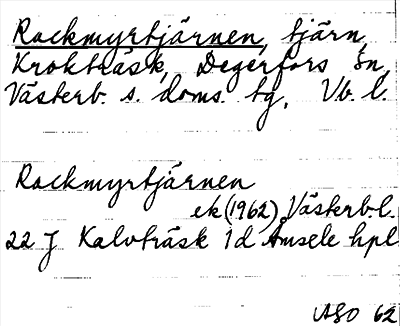 Rackmyrtjärnen, tjärn,
Krokträsk, Degerfors sn,
Västerb. s. doms. tg, Vb. l.
Rackmyrtjärnen
ek (1962) Västerb. l.
22 J Kalvträsk 1d Åmsele hpl
ASO 62